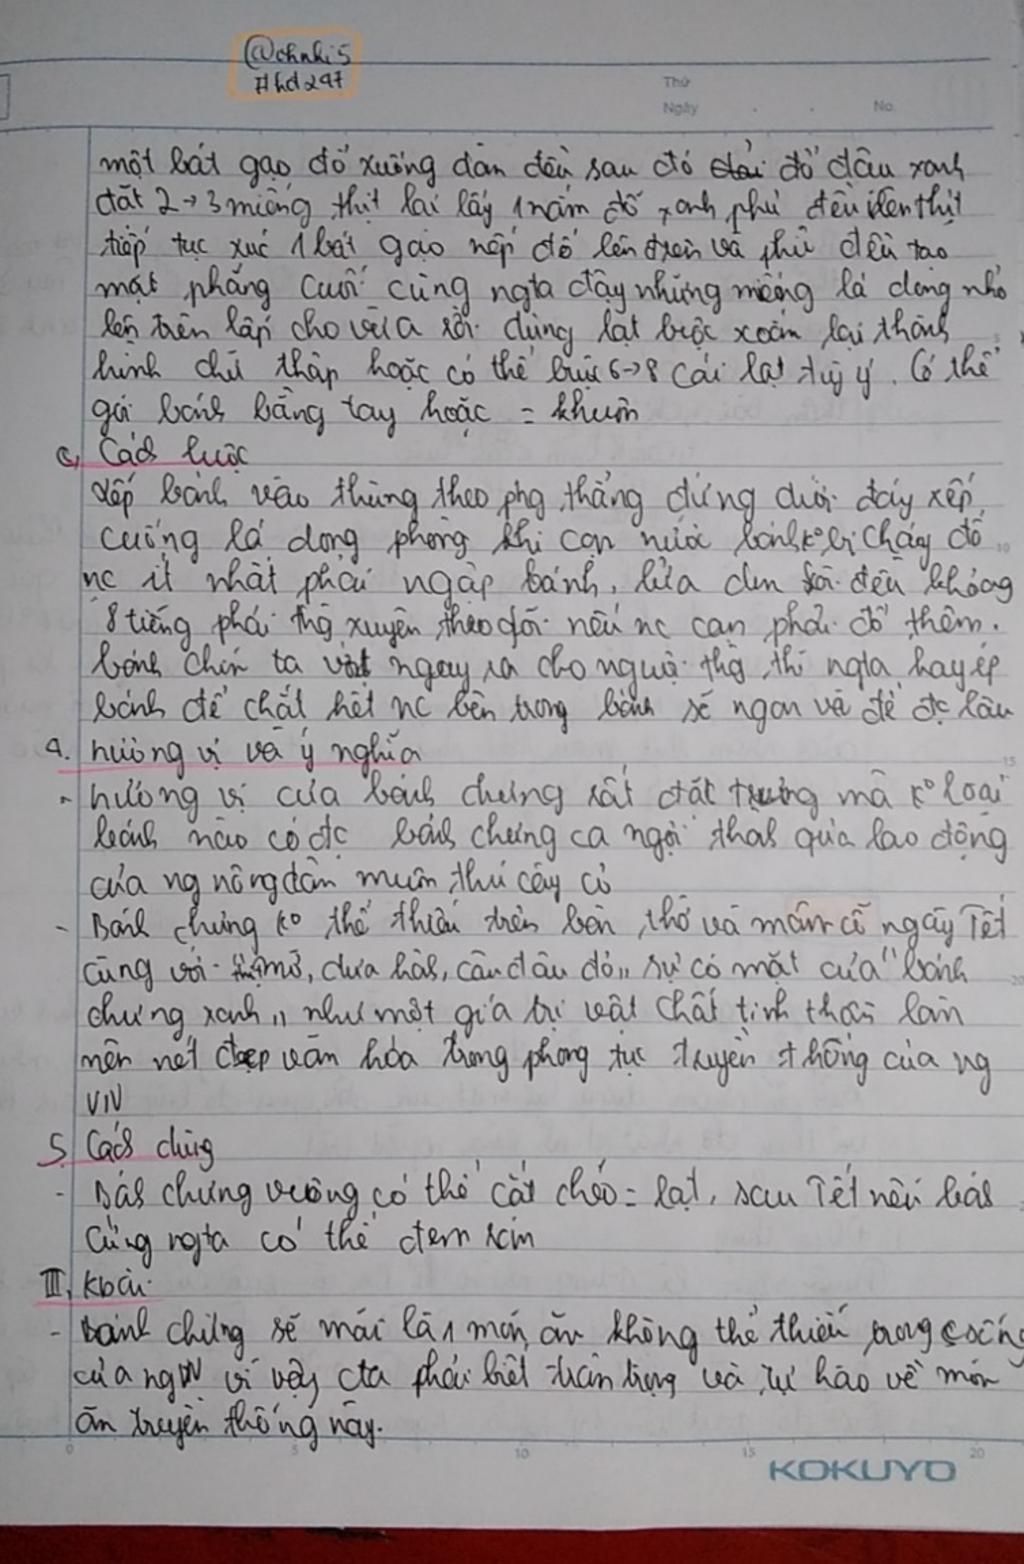 @chnhi5
#hd247
Thứ
Ngày . . No.
một bát gạo đổ xuống dàn đều sau đó đổ đậu xanh
đặt 2→3 miếng thịt lại lấy 1 nắm đỗ xanh phủ đều lên thịt
tiếp tục xúc 1 bát gạo nếp đổ lên trên và phủ đều tạo
mặt phẳng cuối cùng ngta đậy những miếng lá dong nhỏ
lên trên lấp cho vừa rồi dùng lạt buộc xoắn lại thành
hình chữ thập hoặc có thể buộc 6→8 cái lạt tuỳ ý. Có thể
gói bánh bằng tay hoặc = khuôn
c, Cách luộc
Xếp bánh vào thùng theo phg thẳng đứng dưới đáy xếp
cuống lá dong phòng khi cạn nước bánh k° bị cháy đổ
nc ít nhất phải ngập bánh, lửa đun sôi đều khoảng
8 tiếng phải thg xuyên theo dõi nếu nc cạn phải đổ thêm.
bánh chín ta vớt ngay ra cho nguội thg thì ngta hay ép
bánh để chắt hết nc bên trong bánh sẽ ngon và để đc lâu
4. hương vị và ý nghĩa
- hương vị của bánh chưng rất đặc trưng mà k° loại
bánh nào có đc bánh chưng ca ngợi thành quả lao động
của ng nông dân muôn thú cây cỏ
- Bánh chưng k° thể thiếu trên bàn thờ và mâm cỗ ngày Tết
cùng với mỡ, dưa hành, câu đối đỏ,, sự có mặt của "bánh
chưng xanh,, như một giá trị vật chất tinh thần làm
nên nét đẹp văn hóa trong phong tục truyền thống của ng
VN
5. Cách dùng
- Bánh chưng vuông có thể cắt chéo = lạt, sau Tết nếu bánh
cứng ngta có thể đem rán
III, Kbài
- Bánh chưng sẽ mãi là 1 món ăn không thể thiếu trong csống
của ng VN vì vậy cta phải biết trân trọng và tự hào về món
ăn truyền thống này.
0 5 10 15 20
KOKUYO